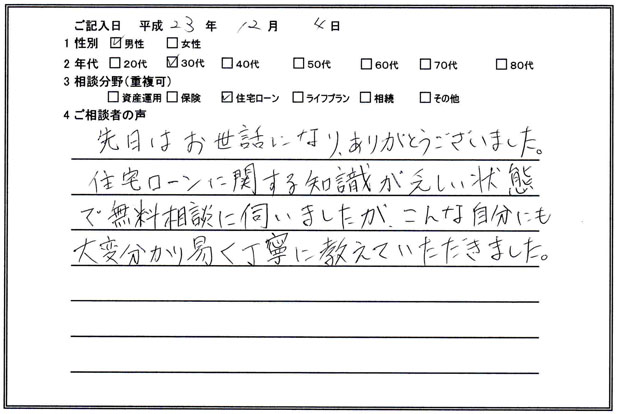 ご記入日 平成 23 年 12 月 4 日
1 性別 ☑男性 □女性
2 年代 □20代 ☑30代 □40代 □50代 □60代 □70代 □80代
3 相談分野(重複可)
□資産運用 □保険 ☑住宅ローン □ライフプラン □相続 □その他
4 ご相談者の声
先日はお世話になり、ありがとうございました。
住宅ローンに関する知識が乏しい状態
で無料相談に伺いましたが、こんな自分にも
大変分かり易く丁寧に教えていただきました。